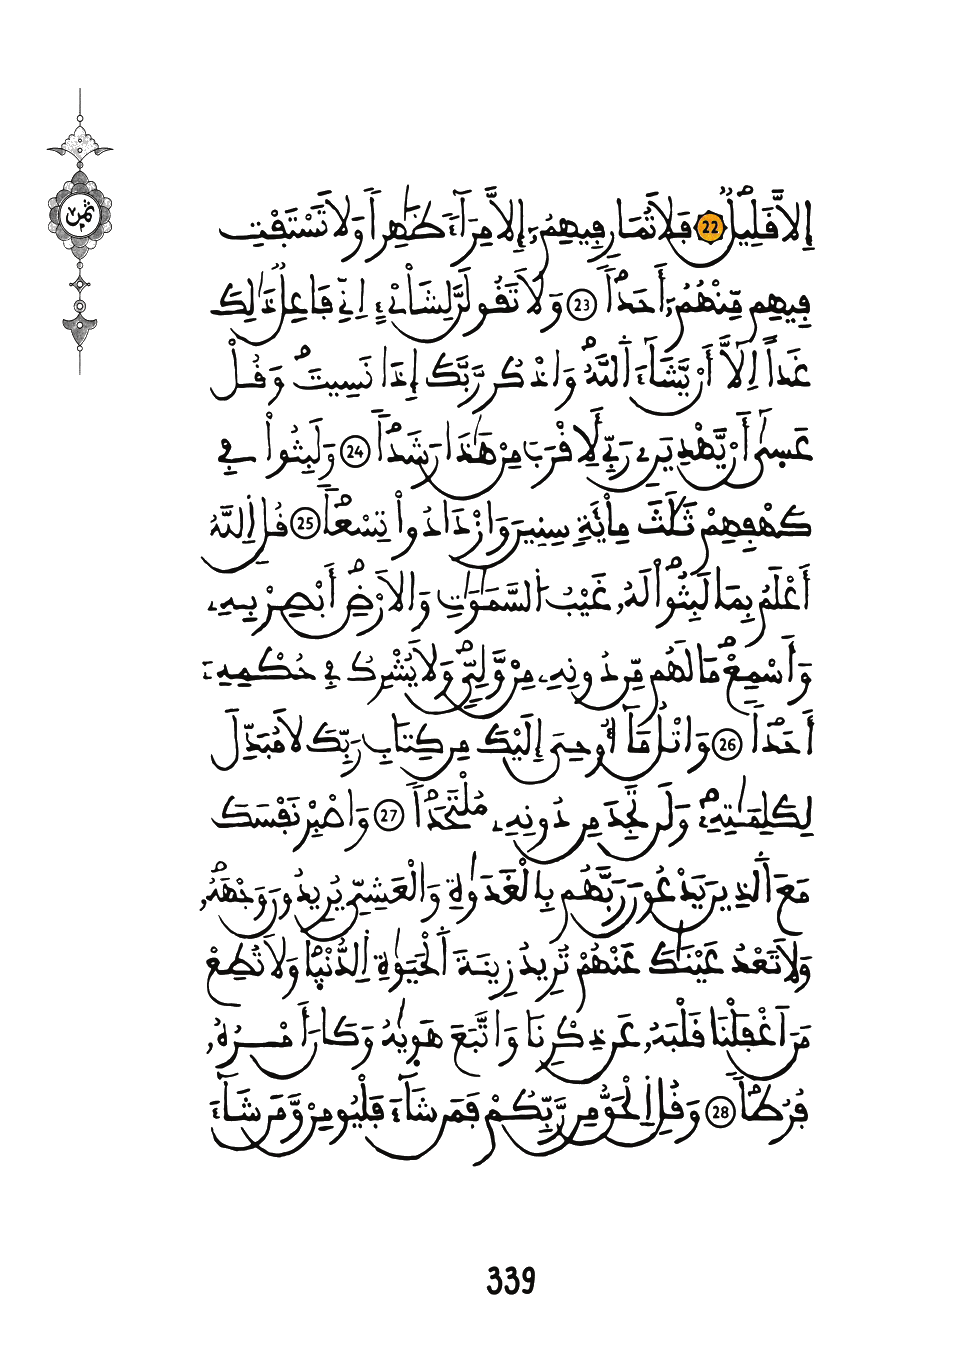 ثمن
إِلَّا قَلِيلٌ 22 فَلَا تُمَارِ فِيهِمُۥٓ إِلَّا مِرَآءً ظَٰهِراً وَلَا تَسْتَفْتِ
فِيهِم مِّنْهُمُۥٓ أَحَداً 23 وَلَا تَقُولَنَّ لِشَاْےْءٍ اِنِّے فَاعِلٌ ذَٰلِكَ
غَداً اِلَّآ أَنْ يَّشَآءَ اَ۬للَّهُ وَاذْكُر رَّبَّكَ إِذَا نَسِيتَ وَقُلْ
عَسٰىٓ أَنْ يَّهْدِيَنِۦ رَبِّے لِأَقْرَبَ مِنْ هَٰذَا رَشَداً 24 وَلَبِثُواْ فِے
كَهْفِهِمْ ثَلَٰثَ مِاْئَةٖ سِنِينَ وَازْدَادُواْ تِسْعاً 25 قُلِ اِ۬للَّهُ
أَعْلَمُ بِمَا لَبِثُواْ لَهُۥ غَيْبُ اُ۬لسَّمَٰوَٰتِ وَالَارْضِ أَبْصِرْ بِهِۦ
وَأَسْمِعْ مَا لَهُم مِّن دُونِهِۦ مِنْ وَّلِيّٖ وَلَا يُشْرِكُ فِے حُكْمِهِۦٓ
أَحَداً 26 وَاتْلُ مَآ أُوحِيَ إِلَيْكَ مِن كِتَابِ رَبِّكَ لَا مُبَدِّلَ
لِكَلِمَٰتِهِۦ وَلَن تَجِدَ مِن دُونِهِۦ مُلْتَحَداً 27 وَاصْبِرْ نَفْسَكَ
مَعَ اَ۬لذِينَ يَدْعُونَ رَبَّهُم بِالْغَدَوٰةِ وَالْعَشِيِّ يُرِيدُونَ وَجْهَهُۥ
وَلَا تَعْدُ عَيْنَٰكَ عَنْهُمْ تُرِيدُ زِينَةَ اَ۬لْحَيَوٰةِ اِ۬لدُّنْيٜا وَلَا تُطِعْ
مَنَ اَغْفَلْنَا قَلْبَهُۥ عَن ذِكْرِنَا وَاتَّبَعَ هَوٜيٰهُ وَكَانَ أَمْرُهُۥ
فُرُطاً 28 وَقُلِ اِ۬لْحَقُّ مِن رَّبِّكُمْ فَمَن شَآءَ فَلْيُومِنْ وَّمَن شَآءَ
339